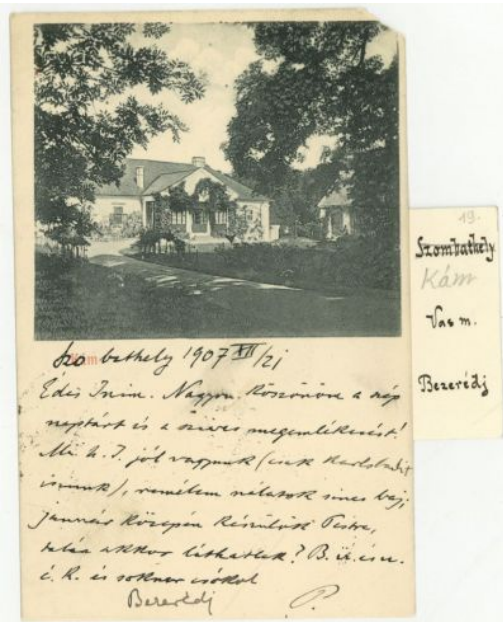 Kám
Szombathely 1907 XII/21
Edes Nagyon köszönöm a szép
naptárt és a szives megemlékezést!
Mi h. I. jól vagyunk (csak Karlsbadit
iszunk), remélem nálatok sincs baj,
január közepén készülök Pestre,
talán akkor láthatlak? B. ü. és
é. K. és csókol
Bezerédj P.
19.
Szombathely
Kám
Vas m.
Bezerédj